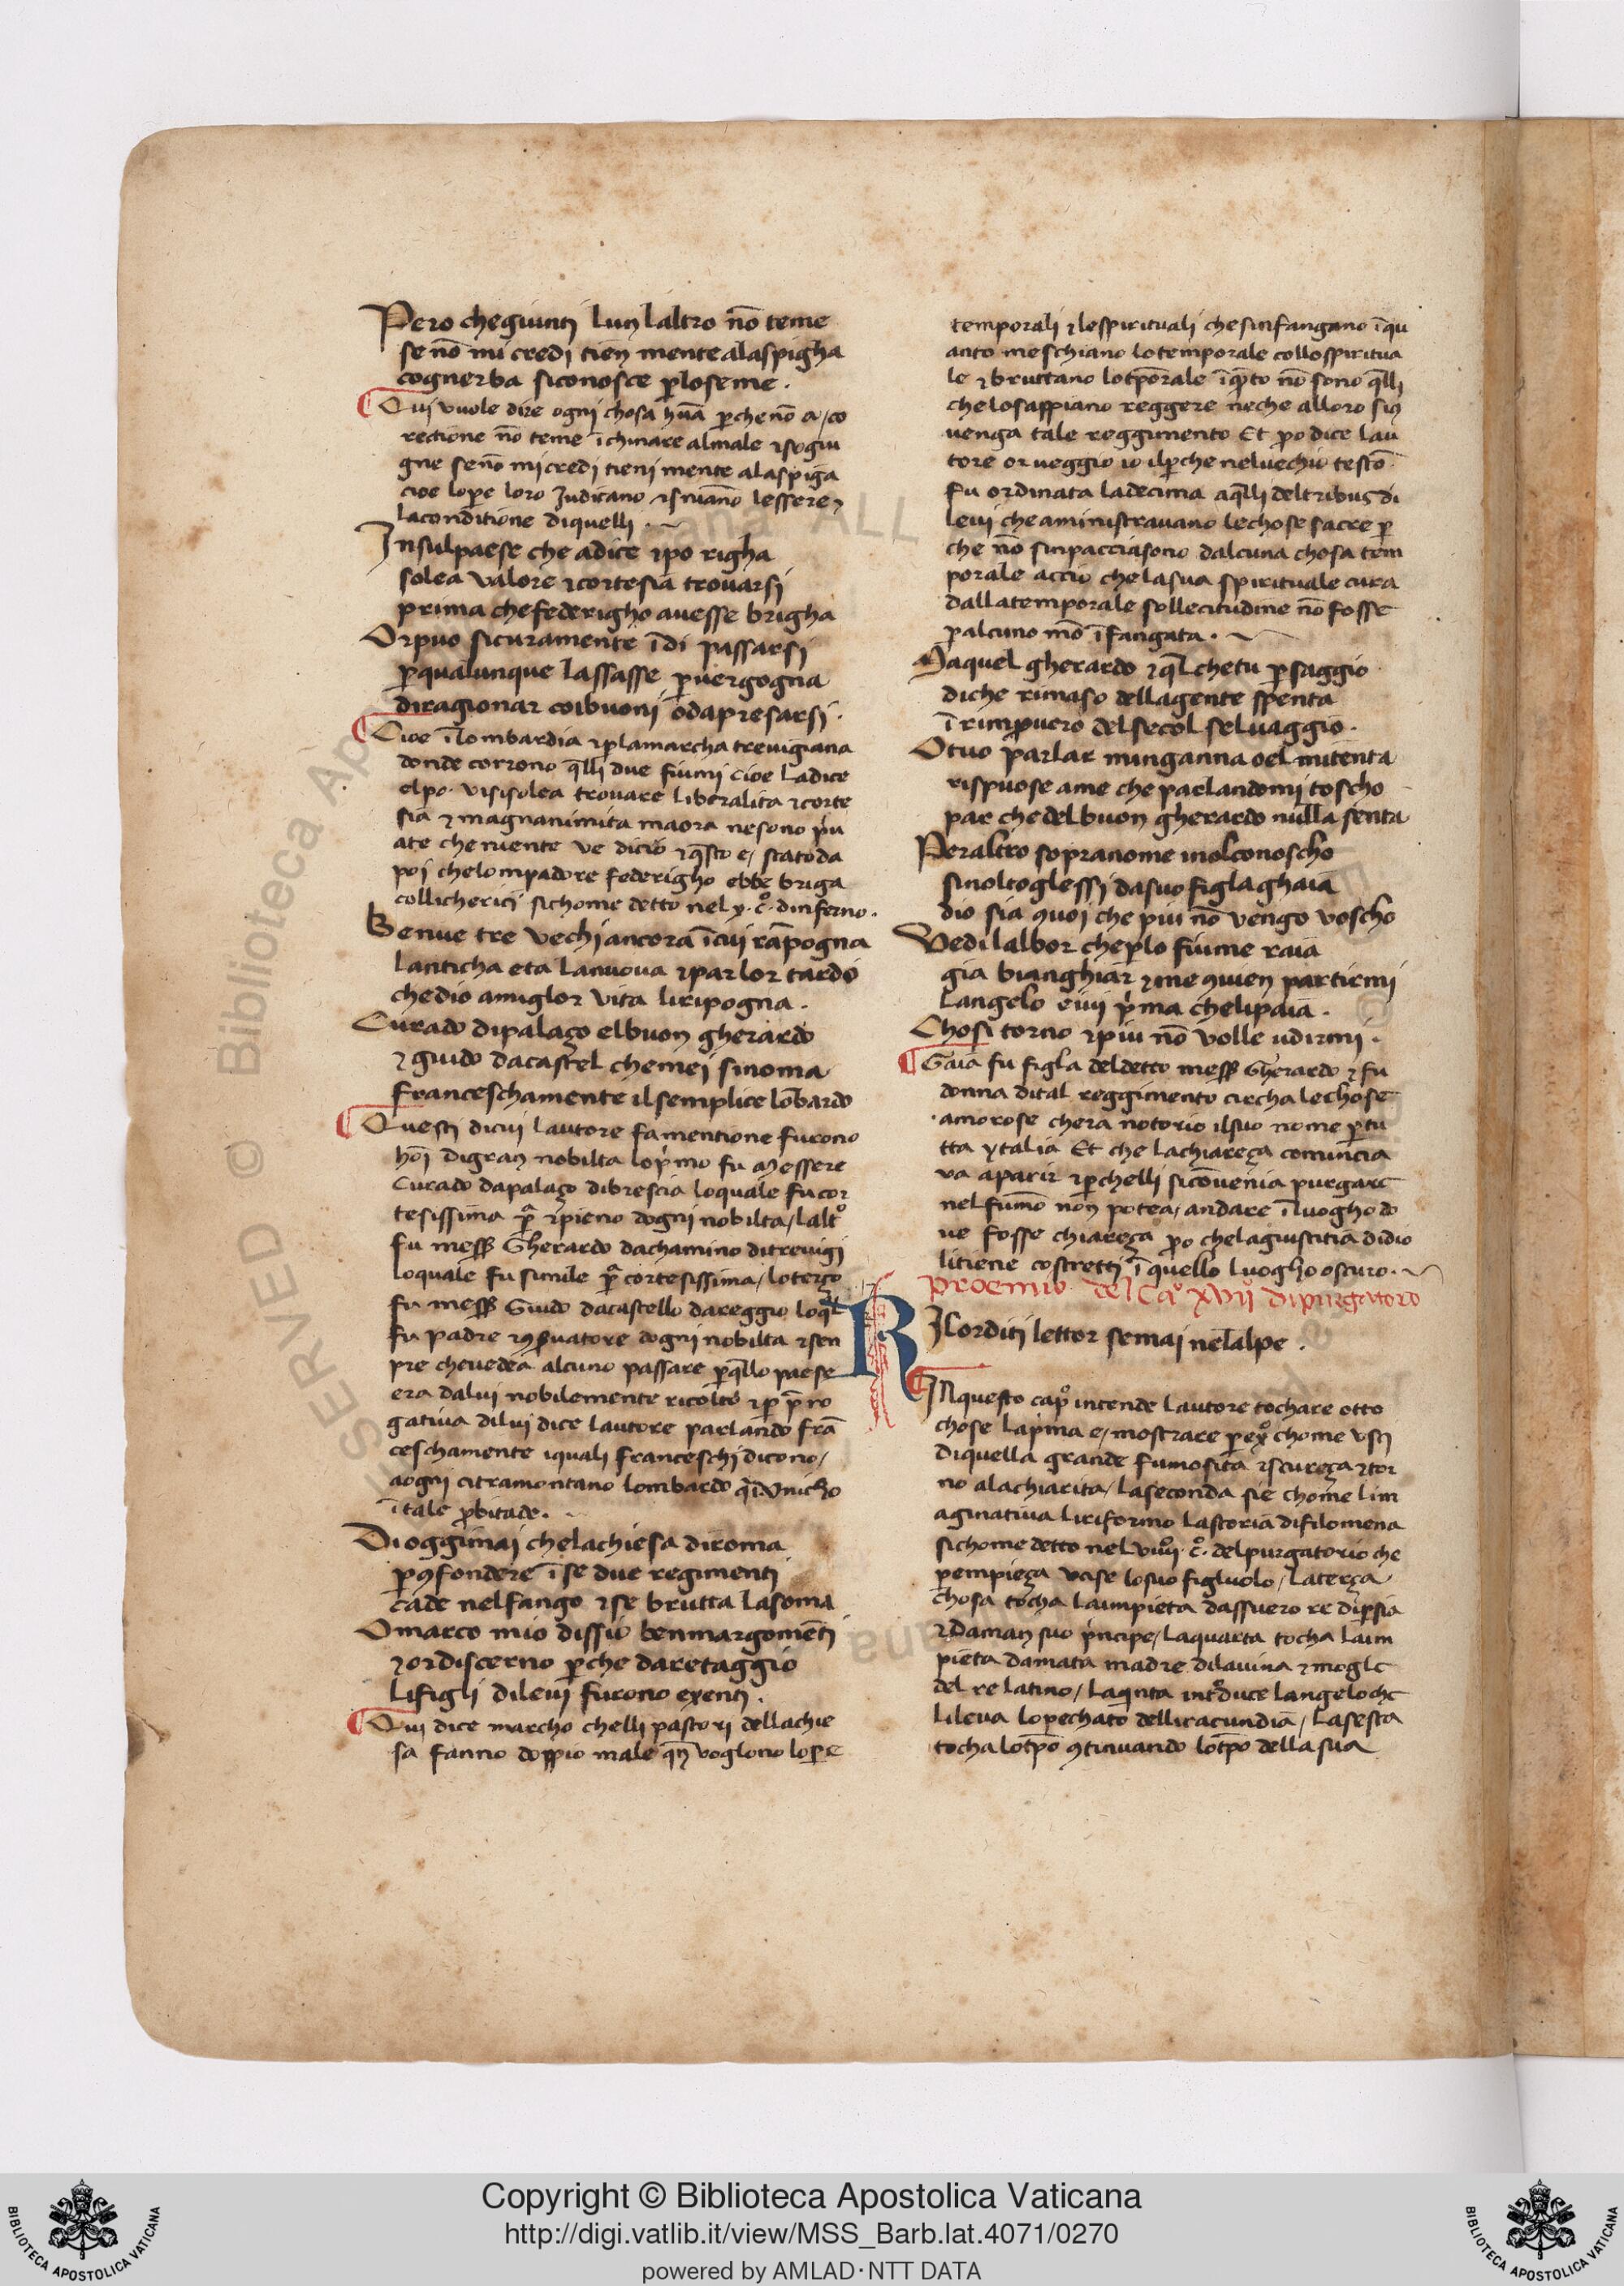 Pero chegiunti lun laltro nō teme
se nō mi credi tien mente alaspigha
cognerba siconosce ploseme .
Qui vuole dire ogni chosa hūa perche nō a / co
rectione nō teme īchinare almale ⁊sogiu
gne senō micredi tieni mente alaspiga
cioe lope loro Judicano lessere ⁊
laconditione diquelli .
Insulpaese che adice ⁊po righa
solea valore ⁊cortesia trovarsi
prima chefederigho avesse brigha
Orpuo sicuramente īdi passarsi
pqualunque lassasse pvergogna
diragionar coibuoni odapresarsi .
Cioe ī lombardia ⁊plamarcha trevigiana
donde corrono qlli due fiumi cioe ladice
elpo . visisolea trovare liberalita ⁊corte
sia ⁊ magnanimita maora nesono
ate che niente ve dicio ⁊qsto e / statoda
poi chelompadore federigho ebbe briga
collicherici sichome detto nel x . c° . dinferno .
Benve tre vechi ancora īcui rāpogna
lanticha eta lanuova ⁊parlor tardo
chedio amiglor vita liripogna .
Curado dipalaço elbuon gherardo
⁊ guido dacastel chemei sinoma
franceschamente ilsemplice lōbardo
Questi dicui lautore famentione furono
hōi digran nobilta lopimo fu messere
Curado dapalaço dibrescia loquale fucor
tesissima ⁊pieno dogni nobilta / lalto
fu mess Gherardo dachamino ditrevigi
loquale fu simile cortesissima / loterço
fu mess Guido dacastello dareggio loql
fu padre ⁊ 9servatore dogni nobilta ⁊sen
pre chevedea alcuno passare pqllo paese
era dalui nobilemente ricolto ⁊p prro
gativa dilui dice lautore parlando frā
ceschamente iquali franceschi dicono /
aogni citramontano lombardo
ī tale pbitade .
Di oggimai chelachiesa diroma
p 9fondere ī se due regimenti
cade nelfango ⁊se brutta lasoma
O marco mio dissio benmargomēti
⁊ordiscerno pche daretaggio
lifigli dilevi furono exenti .
Qui dice marcho chelli pastori dellachie
sa fanno doppio male voglono lope
temporali ⁊lespirituali chesinfangano īqu
anto meschiano lotemporale collospiritua
le ⁊bruttano lotporale īqto nō sono qlli
chelosappiano reggere neche alloro si9
venga tale reggimento Et po dice lau
tore or veggio io ilpche nelvechio testō
fu ordinata ladecima aqlli deltribus di
levi che aministravano lechose sacre p
che nō sinpacciasono dalcuna chosa tem
porale accio chelasua spirituale cura
dallatemporale sollecitudine nō fosse
palcuno mō īfangata .
Maquel gherardo ⁊ql chetu psaggio
diche rimaso dellagente spenta
ī rimpvero delsecol selvaggio .
O tuo parlar minganna oel mitenta
rispuose ame che parlandomi toscho
par che delbuon gherardo nulla senta
Peraltro sopranome inolconoscho
sinoltoglessi dasuo figla ghaia
dio sia 9voi che piu nō vengo voscho
Vedi lalbor cheplo fiume raia
gia bianghiar ⁊me 9vien partirmi
langelo eivi pma chelipaia .
Chosi torno ⁊piu nō volle udirmi .
Gaia fu figla deldetto mess Gherardo ⁊fu
donna dital reggimento circha lechose
amorose chera notorio ilsuo nome ptu
tta ytalia Et che lachiareça comincia
va aparir ⁊pchelli sicōvenia purgare
nelfumo non potea / andare īluogho do
ve fosse chiareça po chelagiustitia didio
litiene costretti ī quello luogho oscuro .
Proemio del Ca° XVII° dipurgatoro
RIcorditi lettor semai nelalpe .
INquesto cap° intende lautore tochare otto
chose lapima e / mostrare pex° chome usci
diquella grande fumosita ⁊scureça ⁊tor
no alachiarita / laseconda sie chome lim
aginativa liriformo lastoria difilomena
sichome detto nel viiii . c° . delpurgatorio che
pempieça ucise losuo figluolo / laterça
chosa tocha laimpieta dassuero re dipsia
⁊Daman suo pincipe / laquarta tocha laim
pieta damata madre dilavina ⁊mogle
del re latino / laqinta intduce langeloche
lileva lopechato delliracundia / lasesta
tocha lotpo 9tinuando lotpo della sua
Copyright © Biblioteca Apostolica Vaticana
http://digi.vatlib.it/view/MSS_Barb.lat.4071/0270
powered by AMLAD·NTT DATA
BIBLIOTECA APOSTOLICA VATICANA
BIBLIOTECA APOSTOLICA VATICANA